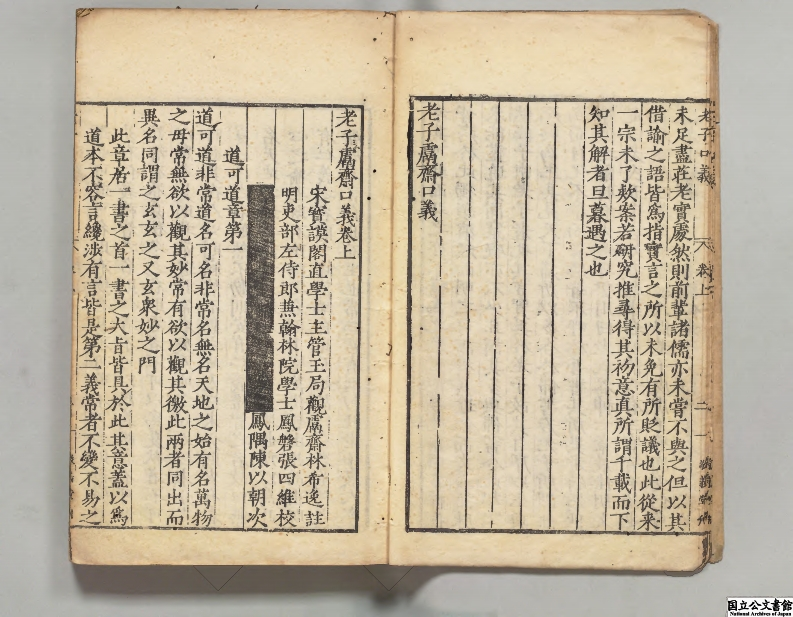 老子口義
卷上
二
未足盡莊老實處然則前輩諸儒亦未嘗不與之但以其
借諭之語皆爲指實言之所以未免有所貶議也此從來
一宗未了欵案若研究推尋得其初意真所謂千載而下
知其解者旦暮遇之也
老子鬳齋口義
老子鬳齋口義卷上
宋寶謨閣直學士主管玉局觀鬳齋林希逸註
明吏部左侍郎兼翰林院學士鳳磐張四維校
鳳隅陳以朝次
道可道章第一
道可道非常道名可名非常名無名天地之始有名萬物
之母常無欲以觀其妙常有欲以觀其徼此兩者同出而
異名同謂之玄玄之又玄衆妙之門
此章居一書之首一書之大旨皆具於此其意蓋以爲
道本不容言纔涉有言皆是第二義常者不變不易之
国立公文書館
National Archives of Japan